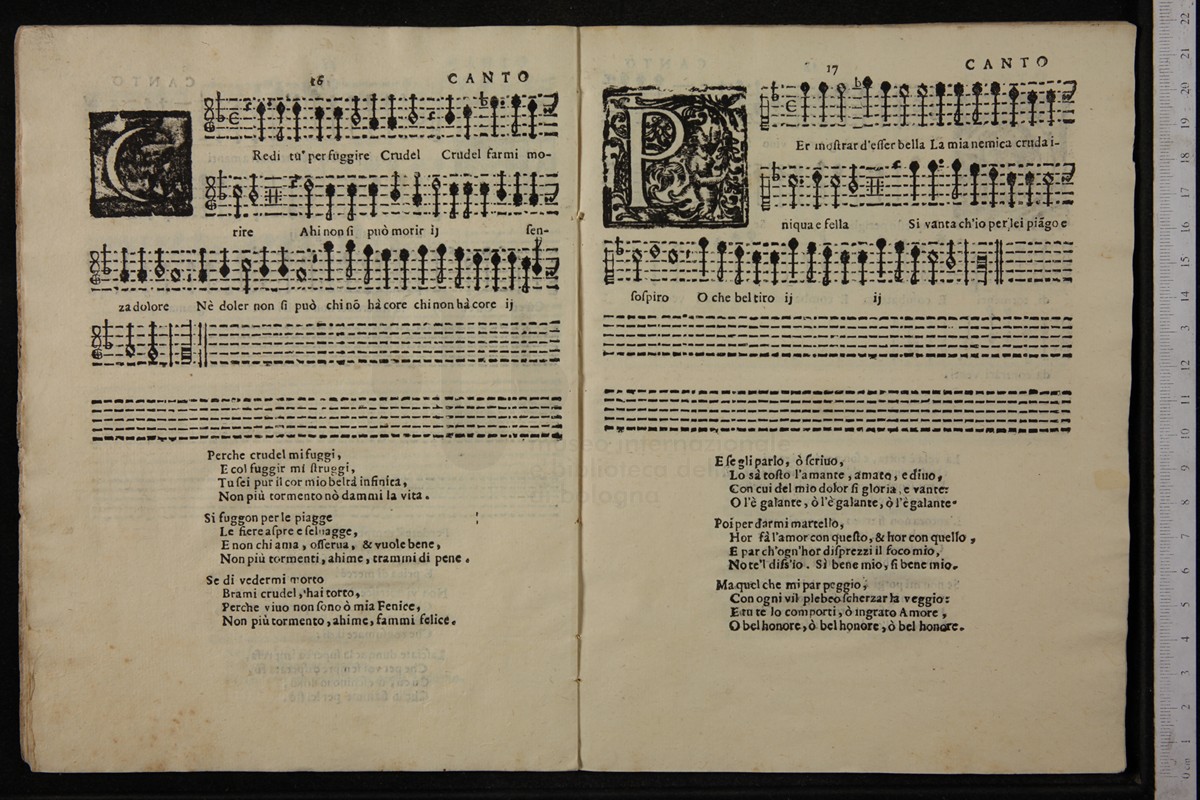 16
CANTO
CRedi tu per fuggire Crudel Crudel farmi mo-
rire Ahi non ſi può morir ij ſen-
za dolore Nè doler non ſi può chi nõ hà core chi non hà core ij
Perche crudel mi fuggi,
E col fuggir mi ſtruggi,
Tu ſei pur il cor mio beltà infinita,
Non più tormento nõ dammi la vita.
Si fuggon per le piagge
Le fiere aſpre e ſeluagge,
E non chi ama, oſſerua, & vuole bene,
Non più tormenti, ahime, trammi di pene.
Se di vedermi morto
Brami crudel, hai torto,
Perche viuo non ſono ò mia Fenice,
Non più tormento, ahime, fammi felice.
17
CANTO
PEr moſtrar d'eſſer bella La mia nemica cruda i-
niqua e fella Si vanta ch'io per lei piãgo e
ſoſpiro O che bel tiro ij ij
E ſe gli parlo, ò ſcriuo,
Lo sà toſto l'amante, amato, e diuo,
Con cui del mio dolor ſi gloria, e vante:
O l'è galante, ò l'è galante, ò l'è galante.
Poi per darmi martello,
Hor fà l'amor con queſto, & hor con quello,
E par ch'ogn'hor diſprezzi il foco mio,
No te'l diſs'io. Sì bene mio, ſi bene mio.
Ma quel che mi par peggio,
Con ogni vil plebeo ſcherzar la veggio:
E tu te lo comporti, ò ingrato Amore,
O bel honore, ò bel honore, ò bel honore.
museo internazionale
e biblioteca della
di bologna